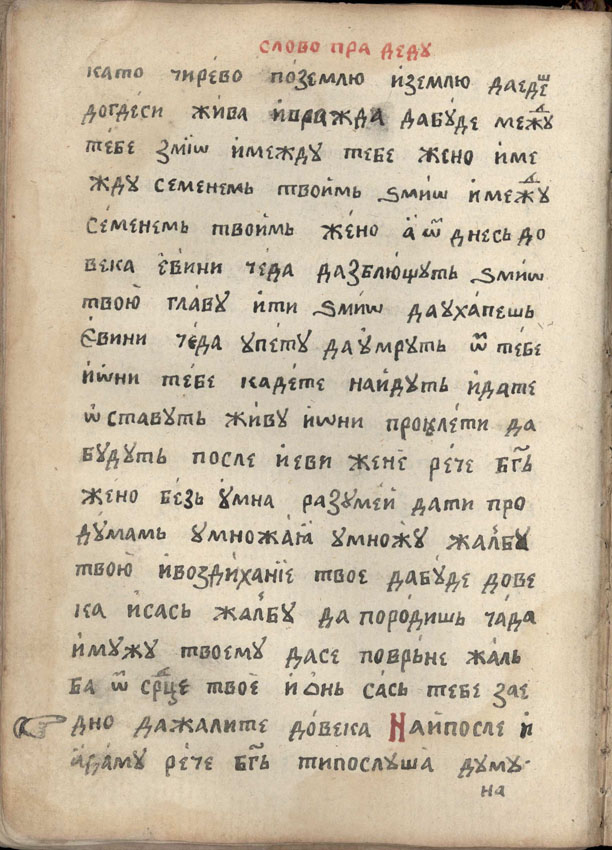 СЛОВО ПРА ДЕДУ
като чирево по́землю и́землю даедеш
догде́си жива и҆вражда дабу́де междꙋ
тебе змїѡ и҆между тебе жено и҆ме
жду семенемь твои́мь ѕмиѡ и҆междꙋ
се́менемь твои́мь же́но а҆ ѿ днесь до
века е҆вини че́да дазблюꙩуть ѕмиѡ
твою̀ главу ити ѕмиѡ дау́ха́пешь
е҆вини че́да у́пету да у́мруть ѿ тебе
и҆ѡ́ни тебе каде́те на́йдуть и҆дате
ѡ҆ставуть живу и҆ѡни проклети да
бу́дуть после и҆еви женѐ рече бг҃ь
жено бе́зь у́мна разумей дати про
ду́мамь умножа́ꙗ умно́жу жа́лбу
твою̀ и҆воздиха́нїе твое дабу́де дове
ка и҆сась жа́лбу да поро́дишь ча́да
и҆му́жу твоему дасе поврьне жаль
ба ѿ ср҃це твоѐ и҆ ѡ҆нь сась тебе зае
дно дажалите до́века На́йпосле и҆
а҆да́му рече бг҃ь типослуша думу
на